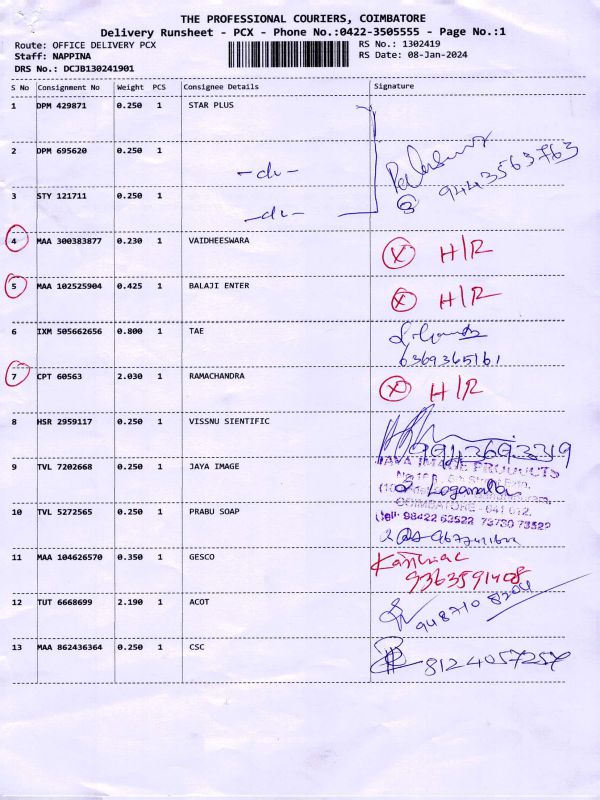 THE PROFESSIONAL COURIERS, COIMBATORE
Delivery Runsheet - PCX - Phone No.:0422-3505555 - Page No.:1
Route: OFFICE DELIVERY PCX RS No.: 1302419
Staff: NAPPINA RS Date: 08-Jan-2024
DRS No.: DCJB130241901
S No Consignment No Weight PCS Consignee Details Signature
1 DPM 429871 0.250 1 STAR PLUS
2 DPM 695620 0.250 1 -do- 9443563763
3 STY 121711 0.250 1 -do-
4 MAA 300383877 0.230 1 VAIDHEESWARA X H/R
5 MAA 102525904 0.425 1 BALAJI ENTER X H/R
6 IXM 505662656 0.800 1 TAE
6369365161
7 CPT 60563 2.030 1 RAMACHANDRA X H/R
8 HSR 2959117 0.250 1 VISSNU SIENTIFIC
JAYA IMAGE PRODUCTS
9 TVL 7202668 0.250 1 JAYA IMAGE
COIMBATORE - 641 012.
10 TVL 5272565 0.250 1 PRABU SOAP
Cell: 98422 63522 73730 73522
11 MAA 104626570 0.350 1 GESCO
9363591408
12 TUT 6668699 2.190 1 ACOT 948710 8204
13 MAA 862436364 0.250 1 CSC 8124057257